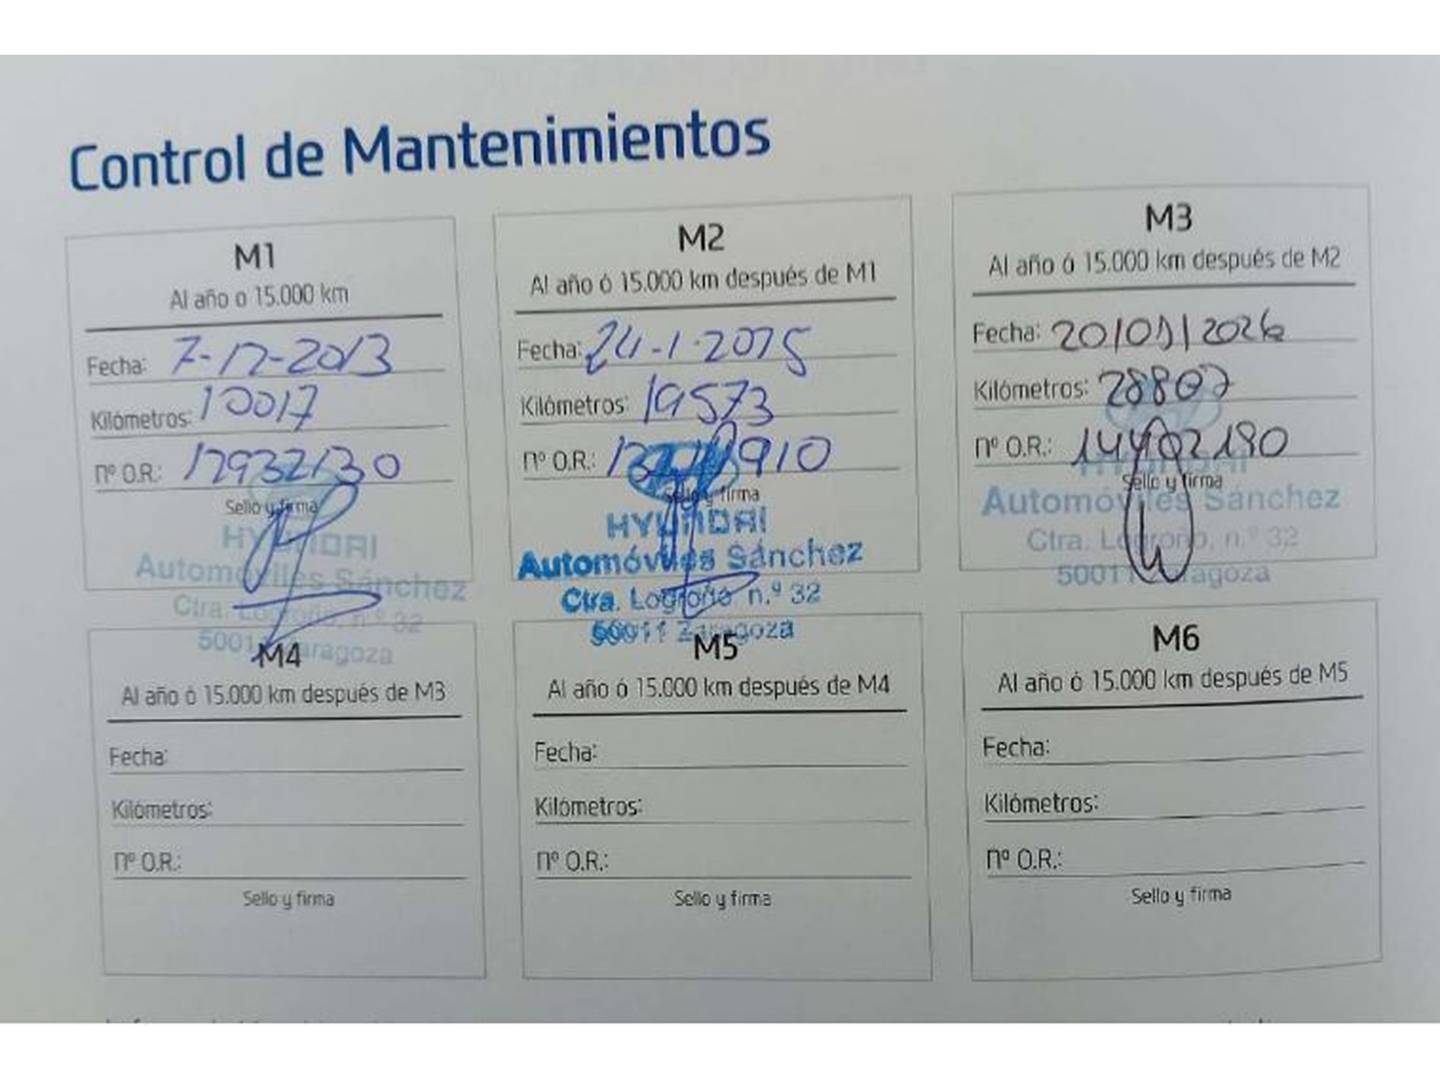 Control de Mantenimientos
M1
Al año o 15.000 km
Fecha: 7-12-2013
Kilómetros: 10017
nº O.R.: 12932130
Sello y firma
HYUNDAI
Automóviles Sánchez
Ctra. Logroño, n.º 32
50011 Zaragoza
M2
Al año ó 15.000 km después de M1
Fecha: 24-1-2015
Kilómetros: 19573
nº O.R.:
Sello y firma
HYUNDAI
Automóviles Sánchez
Ctra. Logroño n.º 32
50011 Zaragoza
M3
Al año ó 15.000 km después de M2
Fecha:
Kilómetros: 28807
nº O.R.: 14402180
Sello y firma
HYUNDAI
Automóviles Sánchez
Ctra. Logroño, n.º 32
50011 Zaragoza
M4
Al año ó 15.000 km después de M3
Fecha:
Kilómetros:
nº O.R.:
Sello y firma
M5
Al año ó 15.000 km después de M4
Fecha:
Kilómetros:
nº O.R.:
Sello y firma
M6
Al año ó 15.000 km después de M5
Fecha:
Kilómetros:
nº O.R.:
Sello y firma